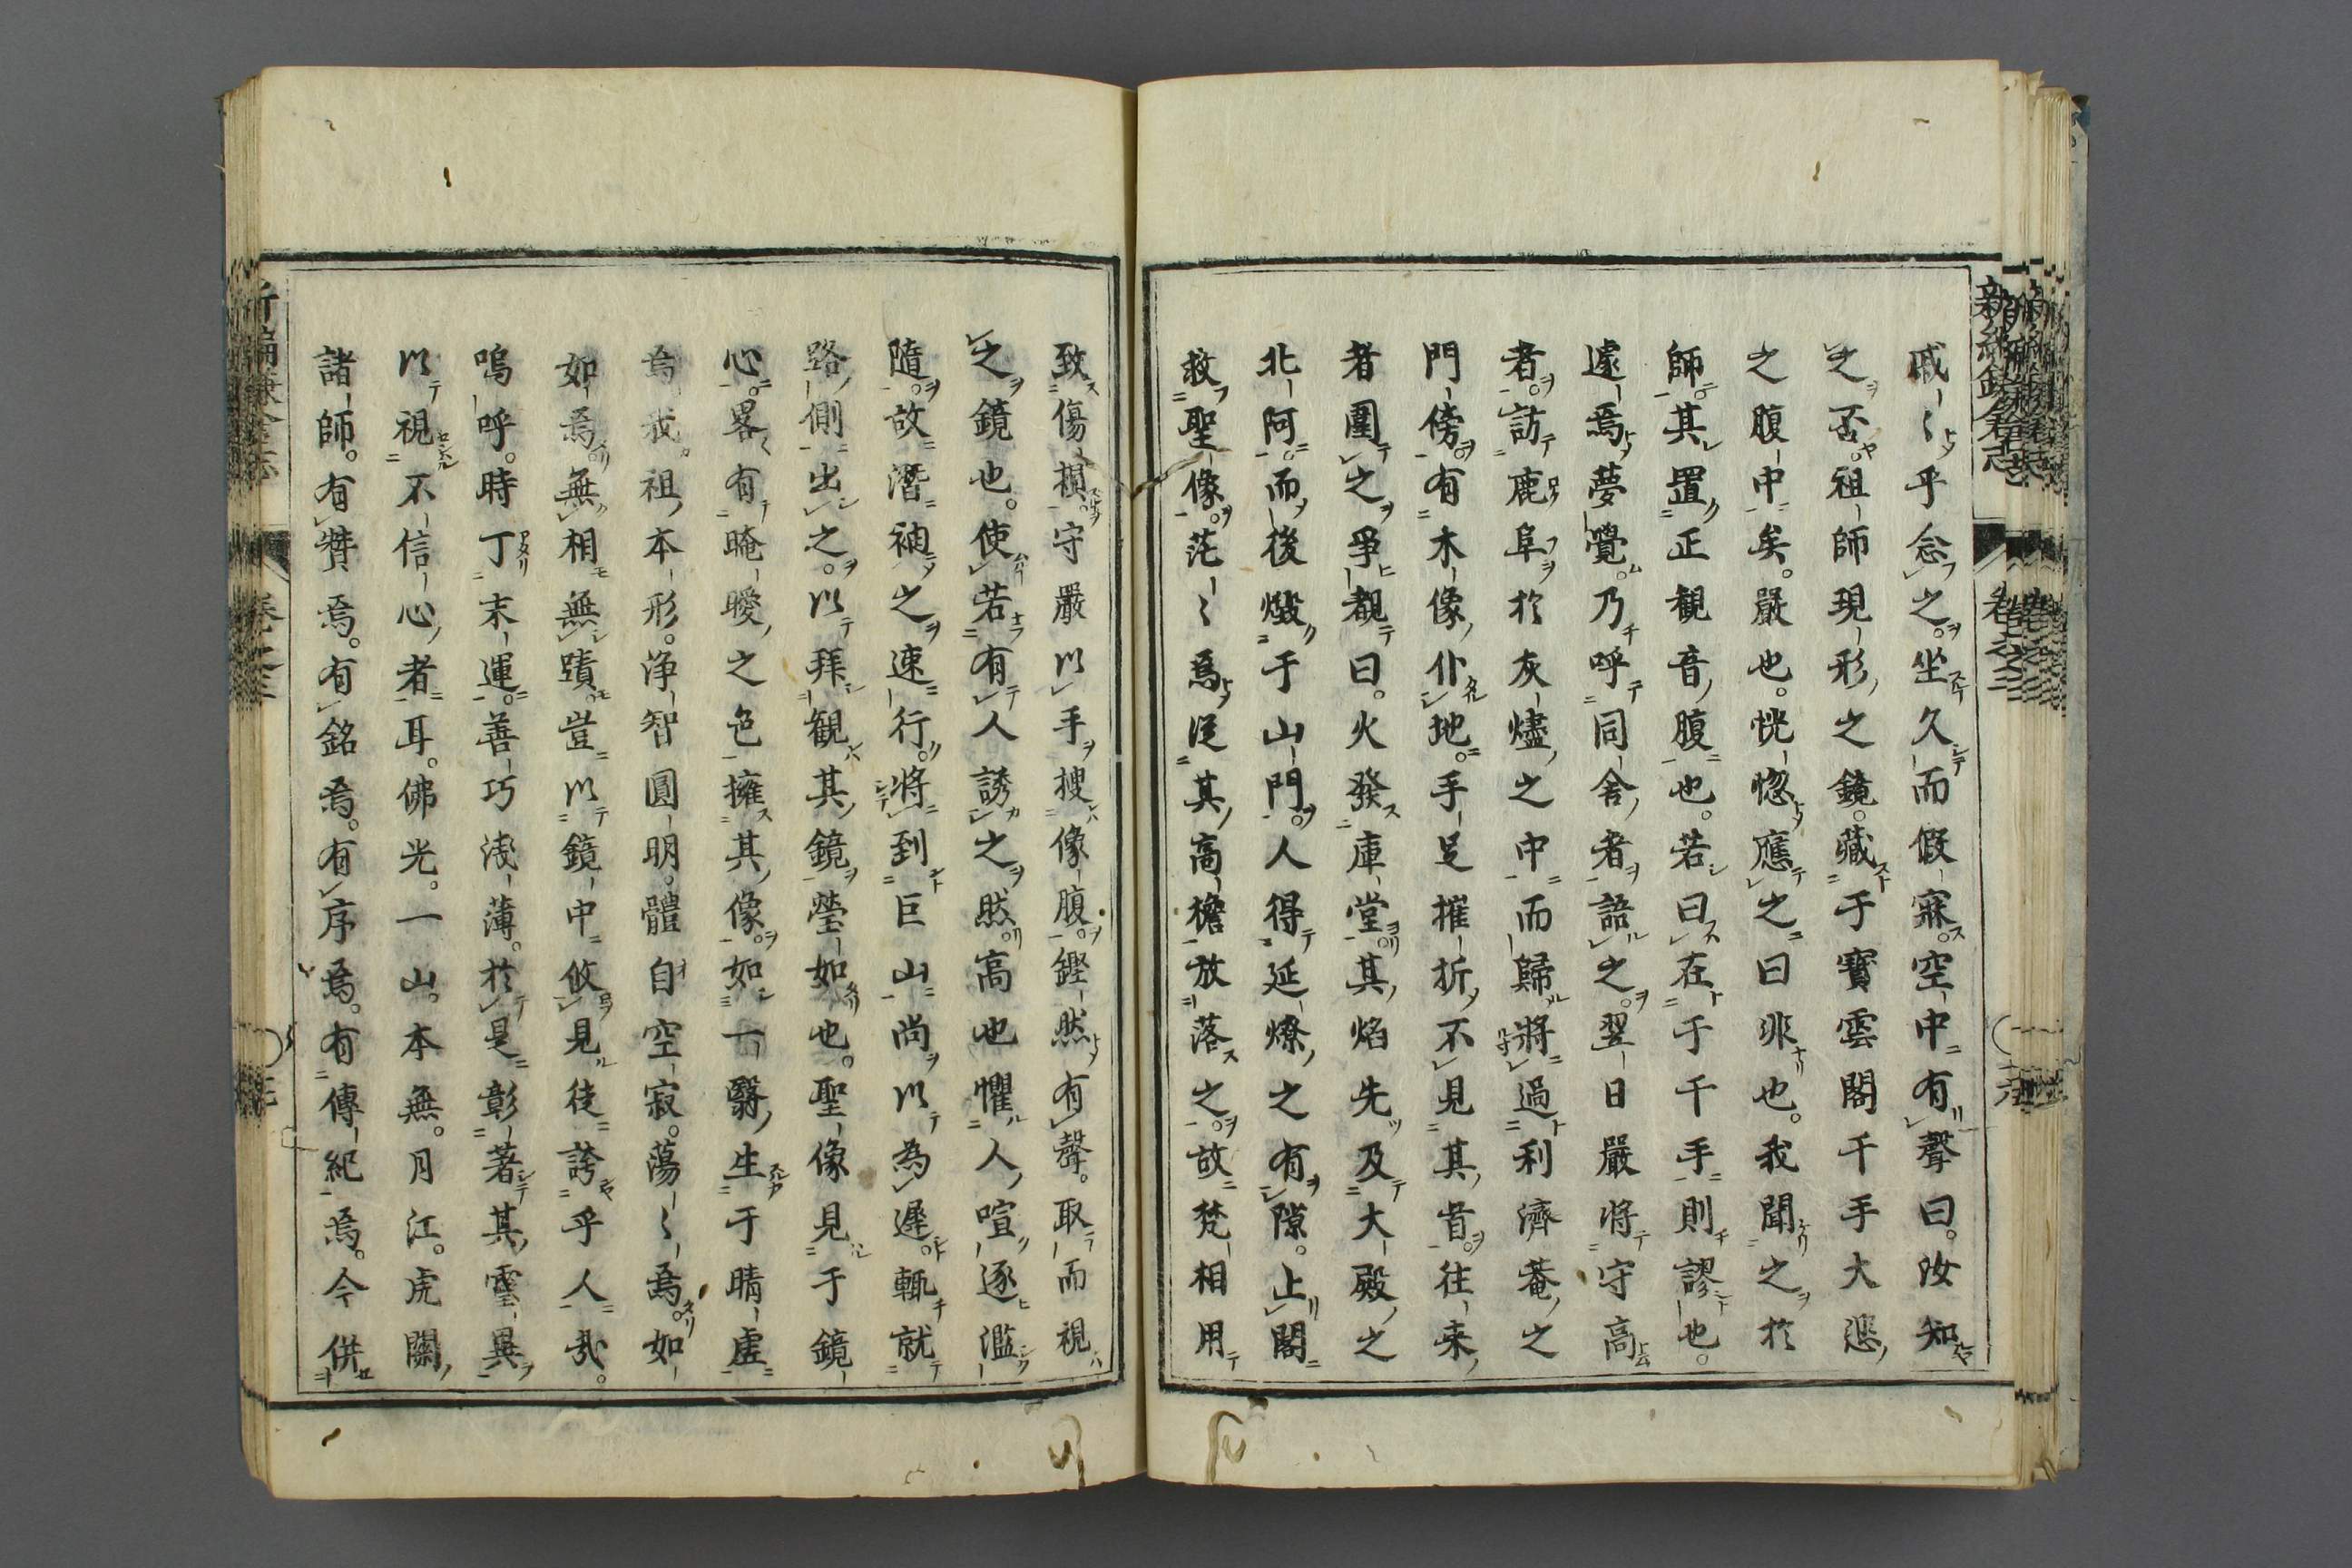 戚〻乎念之。坐久而假寐。空中有聲曰。汝知
之否。祖師現形之鏡。藏于寶雲閣千手大悲
之腹中矣。嚴也。恍惚應之曰非也。我聞之於
師。其置正観音腹也。若曰在于千手則謬也。
遽焉夢覺。乃呼同舍者語之。翌日嚴將守高
者。訪鹿阜於灰燼之中而歸將過利濟菴之
門傍。有木像仆地。手足摧折不見其首。往来
者圍之爭覩曰。火發庫堂。其焰先及大殿之
北阿。而後燬于山門。人得延燎之有隙。上閣
救聖像。茫〻焉従其高檐放落之。故梵相用
致傷損。守嚴以手搜像腹。鏗然有聲。取而視
之鏡也。使若有人誘之然。高也懼人喧逐濫
隨。故潛袖之速行。將到巨山尚以為遲。輒就
路側出之。以拜観其鏡瑩如也。聖像見于鏡
心。畧有晻曖之色擁其像。如一翳生于晴虚
焉我祖本形。浄智圓明。體自空寂。蕩〻焉。如
如焉。無相無蹟。豈以鏡中攸見徒誇乎人哉。
嗚呼。時丁末運。善巧淺薄。於是彰著其靈異
以視不信心者耳。佛光。一山。本無。月江。虎關
諸師。有贊焉。有銘焉。有序焉。有傳紀焉。今供
新編鎌倉志
卷之三